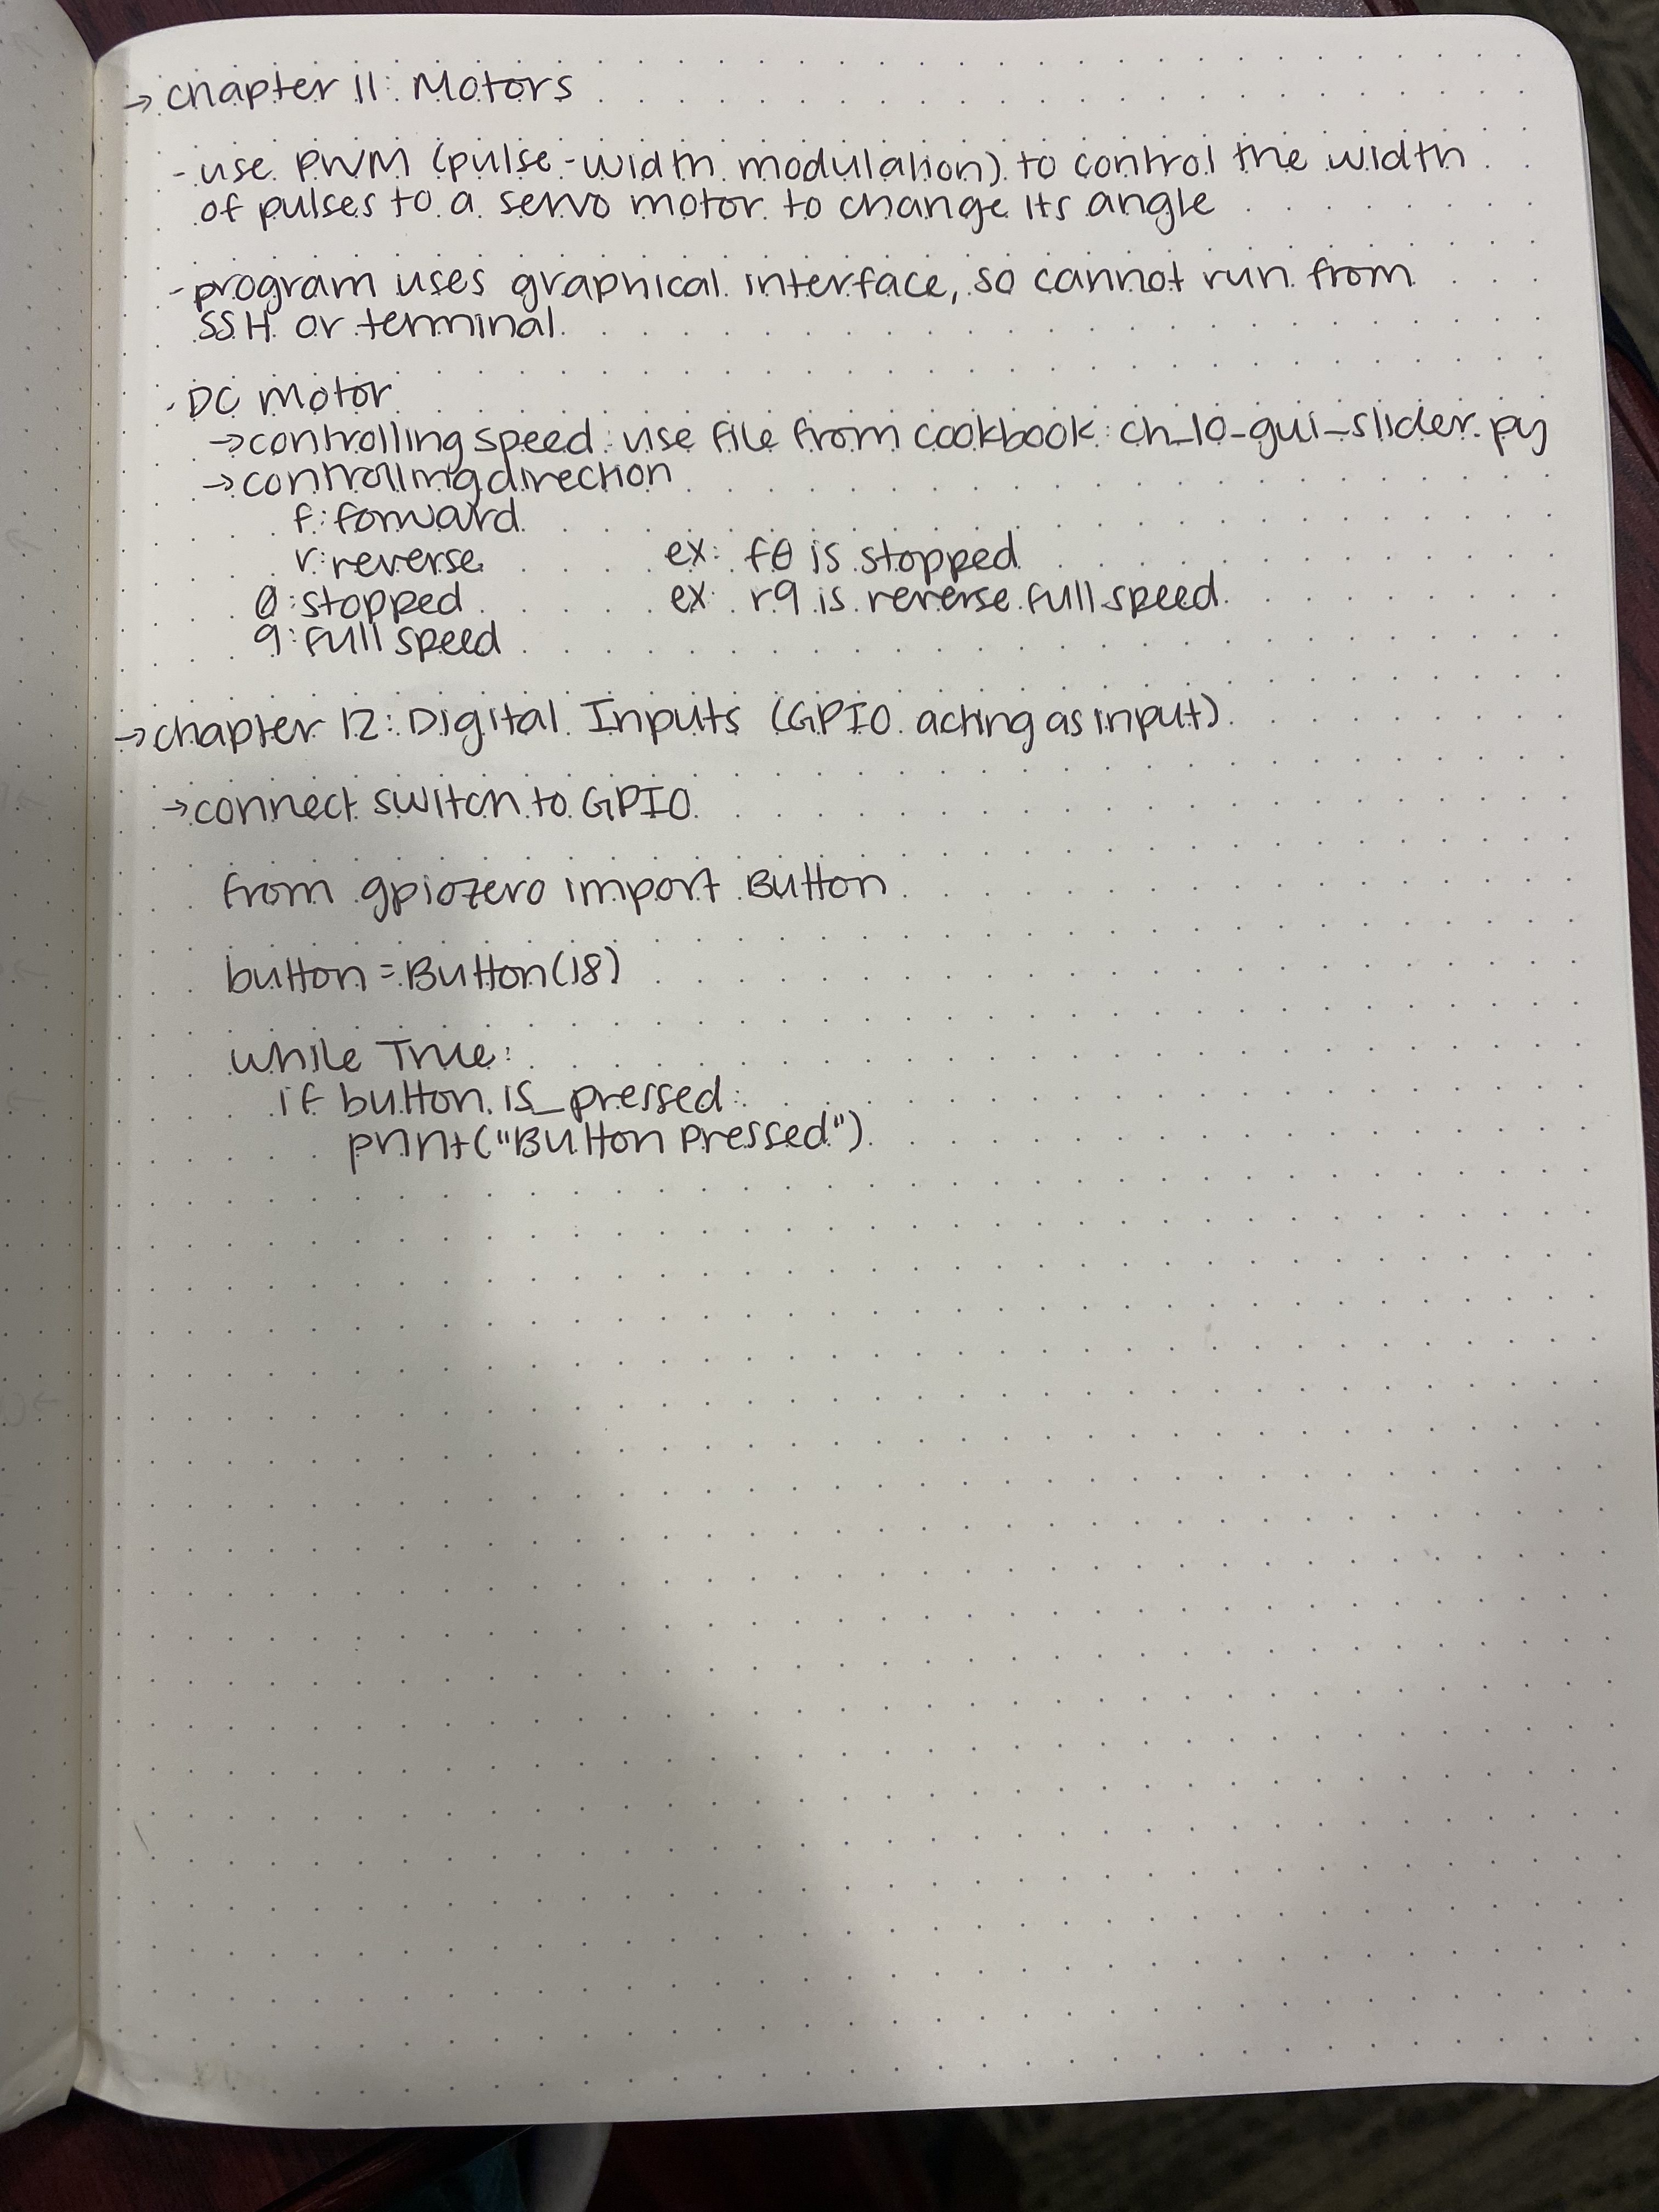 → chapter 11: Motors
- use PWM (pulse-width modulation) to control the width
of pulses to a servo motor to change its angle
- program uses graphical interface, so cannot run from
SSH or terminal
- DC motor
→ controlling speed: use file from cookbook: ch_10_gui_slider.py
→ controlling direction
f: forward
r: reverse ex: f0 is stopped
0: stopped ex: r9 is reverse full speed
9: full speed
→ chapter 12: Digital Inputs (GPIO acting as input)
→ connect switch to GPIO
from gpiozero import Button
button = Button(18)
while True:
if button.is_pressed:
print("Button Pressed")